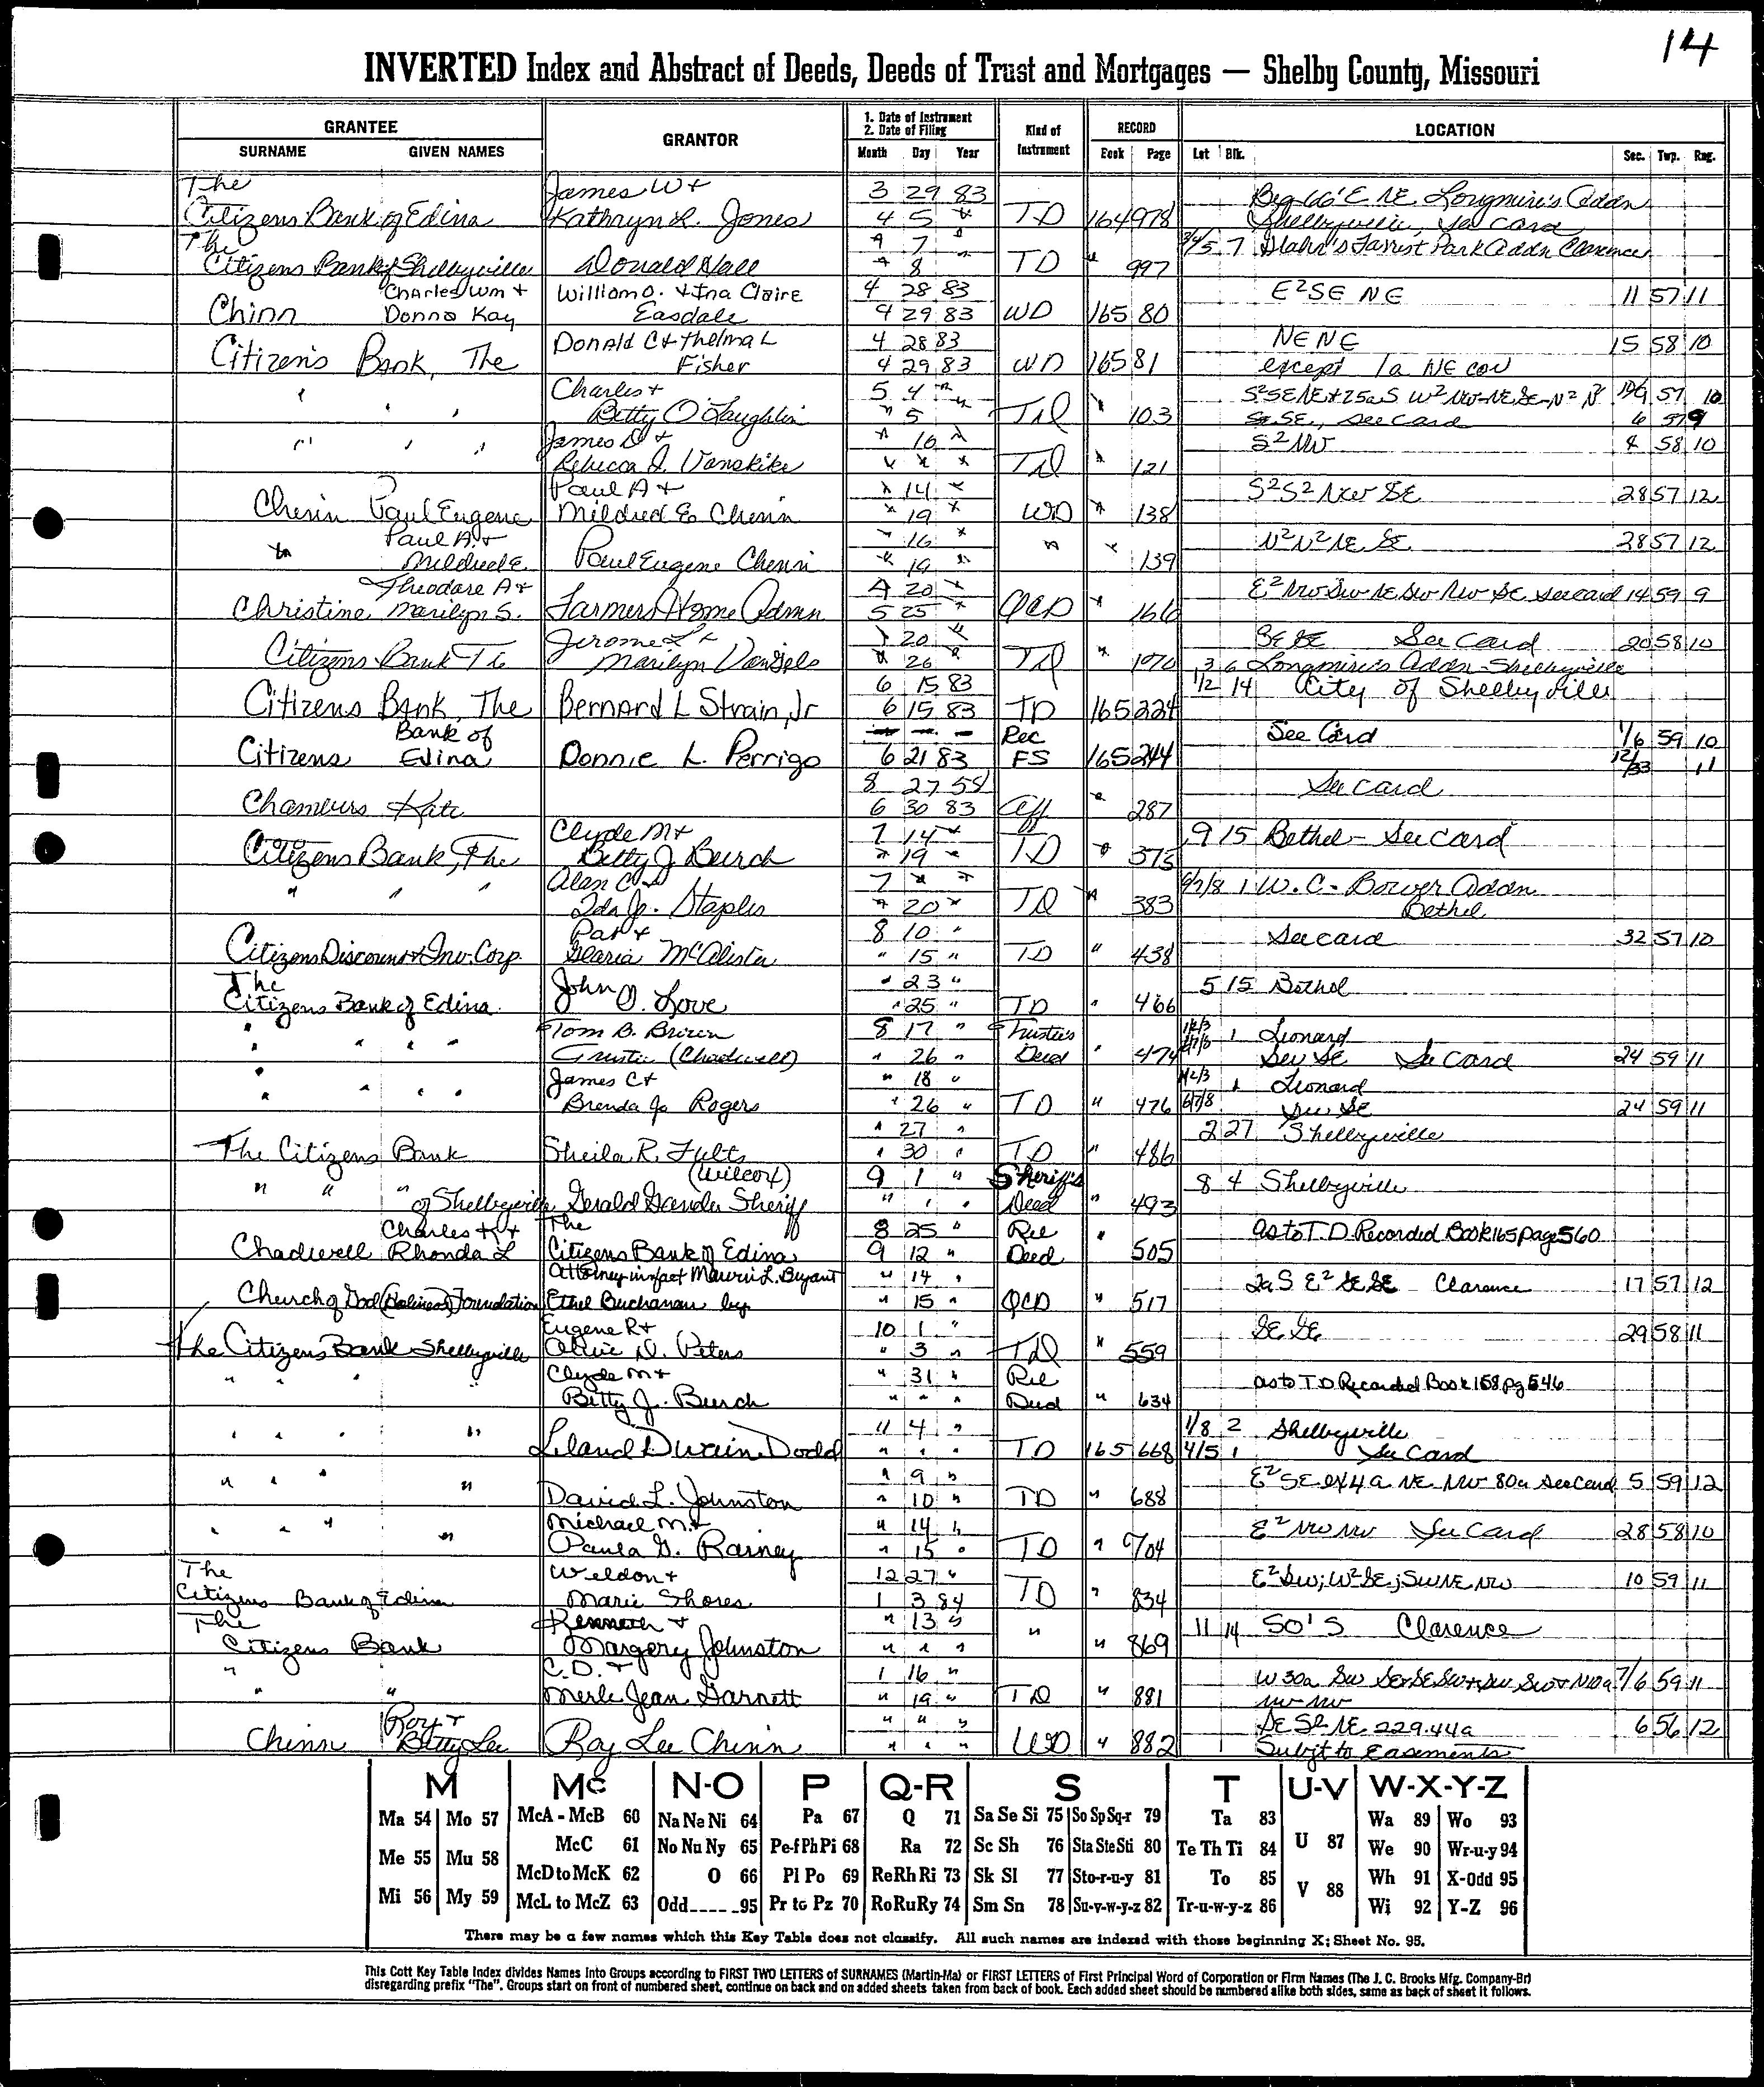 14
INVERTED Index and Abstract of Deeds, Deeds of Trust and Mortgages — Shelby County, Missouri
GRANTEE GRANTOR 1. Date of Instrument 2. Date of Filing Kind of Instrument RECORD LOCATION
SURNAME GIVEN NAMES Month Day Year Book Page Lot Blk. Sec. Twp. Rng.
The James W + 3 29 83 Beg 66' E NE, Longmire's Addn
Citizens Bank of Edina Kathryn L. Jones 4 5 " TD 164 978 Shelbyville, See Card
The 4 7 " 3/4/5 7 Forrest Park Addn Clarence
Citizens Bank of Shelbyville Donald Hall " 8 " TD " 997
Charles Wm + William O. + Ina Claire 4 28 83 E² SE NE 11 57 11
Chinn Donna Kay Easdale 4 29 83 WD 165 80
Donald C + Thelma L 4 28 83 NE NE 15 58 10
Citizens Bank, The Fisher 4 29 83 WD 165 81 except 1a NE cor
Charles + 5 4 " 57 10
" " " Betty O'Laughlin " 5 " TD " 103 SE SE, See Card 6 57 9
James D + " 16 " S² NW 4 58 10
" " " Rebecca J. Vanskike " " " TD " 121
Paul A + " 14 " S² S² NW SE 28 57 12
Chenin Paul Eugene Mildred E Chenin " 19 " WD " 138
Paul A. + " 16 " N² N² NE SE 28 57 12
" Mildred E. Paul Eugene Chenin " 19 " " " 139
Theodore A + 4 20 " E² NW SW NE SW NW SE See card 14 59 9
Christine Marilyn S. Farmers Home Admn 5 25 " QCD " 166
Jerome L + " 20 " SE SE See Card 20 58 10
Citizens Bank The Marilyn " 26 " TD " 3 6 Longmire's Addn Shelbyville
6 15 83 1/2 14 City of Shelbyville
Citizens Bank, The Bernard L Strain, Jr 6 15 83 TD 165 224
Bank of — — — Rec See Card 1/6 59 10
Citizens Edina Donnie L. Perrigo 6 21 83 FS 165 244 12/33 11
8 27 58 See card
Kate 6 30 83 Aff " 287
Clyde M + 7 14 " 9 15 Bethel - See card
Citizens Bank, The Betty J Burch " 19 " TD " 375
Alan C + 7 " " 6/7/8 1 W.C. Bower Addn
" " " Ida Jo. Staples " 20 " TD " 383 Bethel
Pat + 8 10 " See card 32 57 10
Citizens Discount & Inv. Corp. Gloria McAlister " 15 " TD " 438
The John " 23 " 5 15 Bethel
Citizens Bank of Edina O. Love " 25 " TD " 466
Tom B. Brown 8 17 " Trustee's 1/2/3 1 Leonard
" " " " Trustee (Chadwell) " 26 " Deed " 474 6/7/8 SW SE See Card 24 59 11
James C + " 18 " 1/2/3 1 Leonard
" " " " Brenda Jo Rogers " 26 " TD " 476 6/7/8 SW SE 24 59 11
" 27 " 2 27 Shelbyville
The Citizens Bank Sheila R. Fults " 30 " TD " 486
" " " (Wilcox) 9 1 " Sheriff's 8 4 Shelbyville
of Shelbyville Gerald Gander Sheriff " " " Deed " 493
Charles R + The 8 25 " Rel " as to T.D. Recorded Book 165 page 560
Chadwell Rhonda L Citizens Bank of Edina 9 12 " Deed 505
Attorney in fact Maurin L. Bryant " 14 " 2a S E² SE SE Clarence 17 57 12
Church of God (Holiness) Foundation Ethel Buchanan by " 15 " QCD " 517
Eugene R + 10 1 " SE SE 29 58 11
The Citizens Bank Shelbyville Olive D. Peters " 3 " TD " 559
Clyde M + " 31 " Rel as to T D Recorded Book 158 pg 546
" " " " Betty J. Burch " " " Deed " 634
" " " " 11 4 " 1/8 2 Shelbyville
Leland Dwain Dodd " " " TD 165 668 4/5 1 See Card
" " " " " 9 " E² SE ex 4a NE NW 80a See Card 5 59 12
David L. Johnston " 10 " TD " 688
Michael M. + " 14 " E² NW NW See Card 28 58 10
" " " " Paula G. Rainey " 15 " TD " 704
The Weldon + 12 27 " E² SW; W² SE; SW NE NW 10 59 11
Citizens Bank of Edina Marie Shores 1 3 84 TD " 834
The Kenneth + " 13 " 11 14 50' S Clarence
Citizens Bank Margery Johnston " " " " " 869
" C.D. + 1 16 " W 30a SW 7/6 59 11
" " Merle Jean Garnett " 19 " TD " 881 NW NW
Roy + " " " SE S² NE 229.44a 6 56 12
Chinn Betty Lee Roy Lee Chinn " " " WD " 882 Subjt to Easements
M Mc N-O P Q-R S T U-V W-X-Y-Z
Ma 54 Mo 57 McA - McB 60 Na Ne Ni 64 Pa 67 Q 71 Sa Se Si 75 So Sp Sq-r 79 Ta 83 U 87 Wa 89 Wo 93
Me 55 Mu 58 McC 61 No Nu Ny 65 Pe-f Ph Pi 68 Ra 72 Sc Sh 76 Sta Ste Sti 80 Te Th Ti 84 We 90 Wr-u-y 94
McD to McK 62 O 66 Pl Po 69 Re Rh Ri 73 Sk Sl 77 Sto-r-u-y 81 To 85 V 88 Wh 91 X-Odd 95
Mi 56 My 59 McL to McZ 63 Odd_____95 Pr to Pz 70 Ro Ru Ry 74 Sm Sn 78 Su-v-w-y-z 82 Tr-u-w-y-z 86 Wi 92 Y-Z 96
There may be a few names which this Key Table does not classify. All such names are indexed with those beginning X; Sheet No. 95.
This Cott Key Table Index divides Names into Groups according to FIRST TWO LETTERS of SURNAMES (Martin-Ma) or FIRST LETTERS of First Principal Word of Corporation or Firm Names (The J. C. Brooks Mfg. Company-Br)
disregarding prefix "The". Groups start on front of numbered sheet, continue on back and on added sheets taken from back of book. Each added sheet should be numbered alike both sides, same as back of sheet it follows.